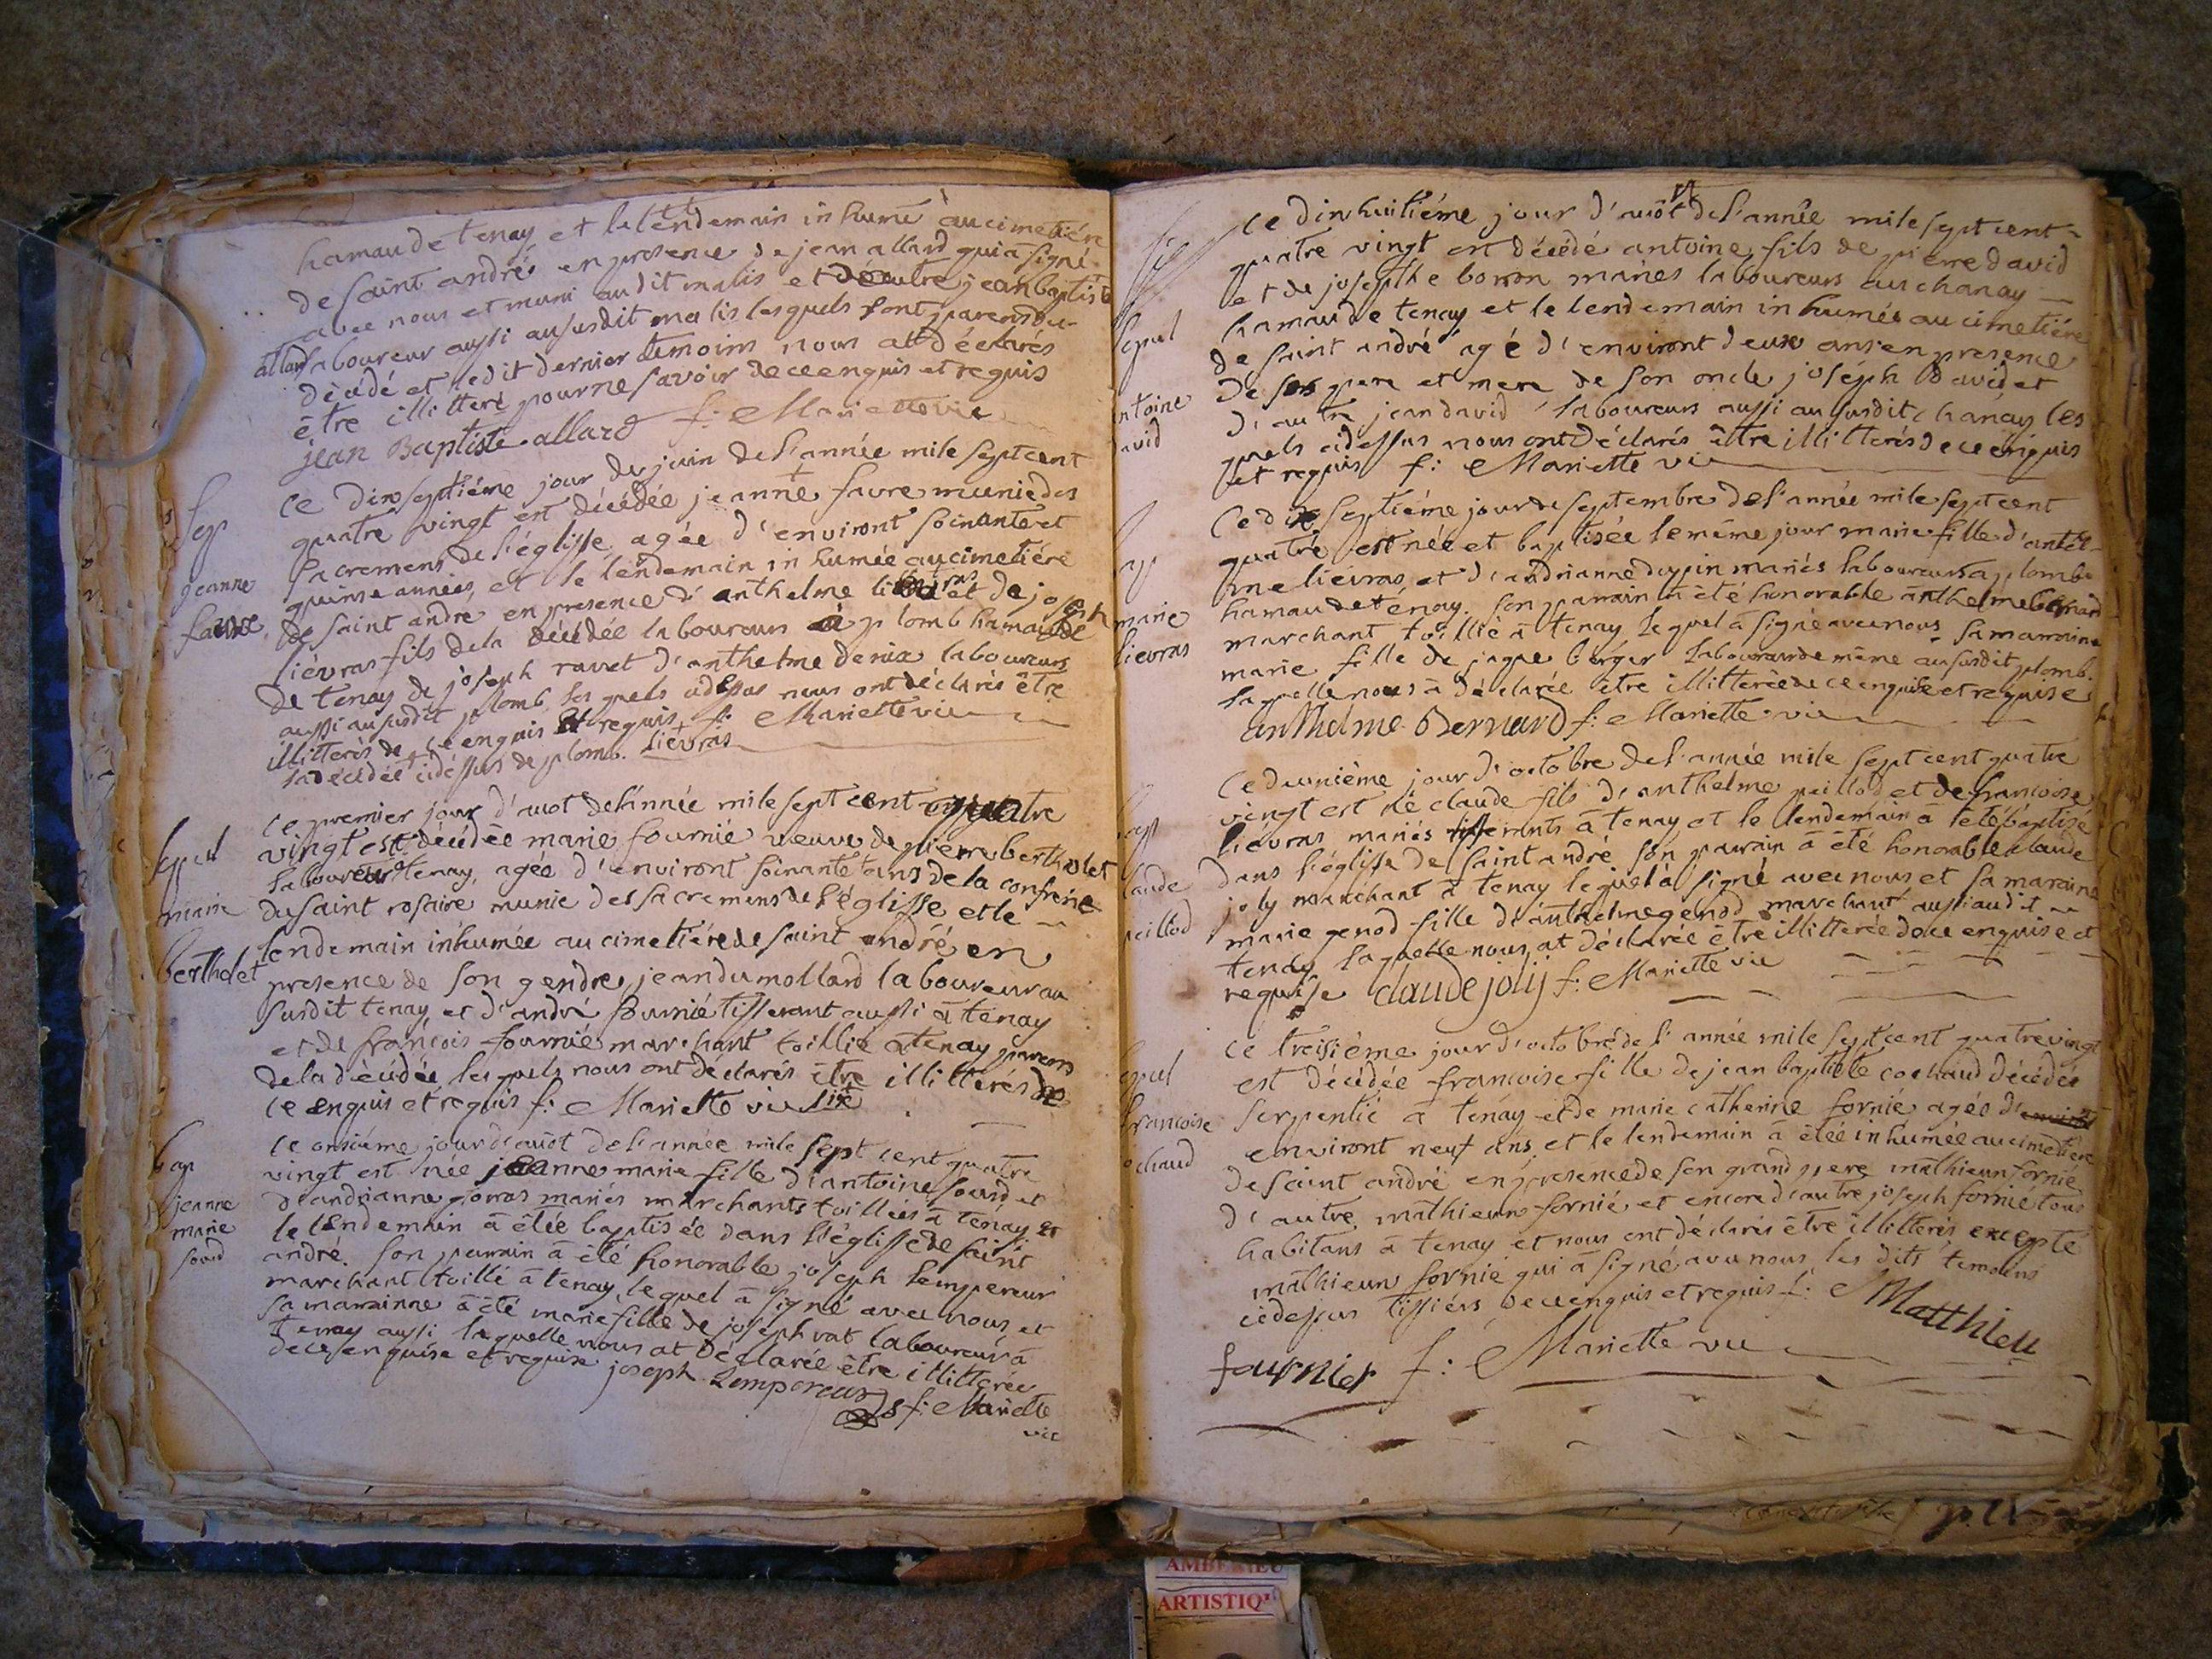 hamau de tenay et le lendemain inhumé au cimetiére
de saint andrés en presence de jean allard qui a signé
avec nous et muni audit malis et d'autre jean baptiste
allard laboureur aussi au susdit malis lesquels sont parens du
décédé et ledit dernier temoins nous at déclarés
être illitteré pour ne savoir de ce enquis et requis
jean Baptiste allard f: Mariette vic
Sep
jeanne
favre
ce dixseptiéme jour de juin de l'année mile sept cent
quatre vingt est décédée jeanne favre munie des
sacremens de l'églisse agée d'environt soixante et
quinse années, et le lendemain inhumée au cimetiére
de saint andre en presence d'anthelme liévras et de joseph
liévras fils de la décédée laboureurs à plomb hamau de
de tenay de joseph ravet d'anthelme denix laboureurs
aussi au susdit plomb, les quels cidessus nous ont déclarés être
illitterés de ce enquis et requis f: Mariette vic
la décédée cidessus de plomb. liévras
sepul
marie
berthelet
ce premier jour d'auot de l'année mile sept cent quatre
vingt est décédée marie fournié veuve de pierre berthelet
laboureur de tenay, agée d'environt soixante ans de la confreirie
du saint rosaire munie des sacremens de l'églisse et le
lendemain inhumée au cimetiére de saint andré en
presence de son gendre, jean dumollard laboureur au
susdit tenay, et d'andré fournié tisserant aussi à tenay
et de francois fournié marchant toillié a tenay parens
de la décédée les quels nous ont déclarés être illitterés de
ce enquis et requis f: Mariette vic
bap
jeanne
marie
soud
ce onsiéme jour d'auot de l'année mile sept cent quatre
vingt est née jeanne marie fille d'antoine soud et
d'andrianne gorras mariés marchants toilliés à tenay et
le lendemain à étée baptisée dans l'églisse de saint
andré. son parrain à été honorable joseph lempereur
marchant toillié à tenay lequel à signé avec nous et
sa marainne à été marie fille de joseph vat laboureur à
tenay aussi laquelle nous at déclarée être illitterée
de ce enquise et requise joseph Lempereur
f: Mariette
vic
sepul
antoine
david
ce dixhuitiéme jour d'auôt de l'année mile sept cent
quatre vingt est décédé antoine fils de pierre david
et de josephte borron mariés laboureurs au chanay
hamau de tenay et le lendemain inhumés au cimetiére
de saint andré agé d'environt deux ans en presence
de ses pere et mere de son oncle joseph David et
d'autre jean david laboureurs aussi au susdit chanay les
quels cidessus nous ont déclarés être illitterés de ce enquis
et requis f: Mariette vic
bap
marie
lievras
ce dix septiéme jour de septembre de l'année mile sept cent
quatre est née et baptisée le même jour marie fille d'antel
me liévras et d'andrianne dupin mariés laboureurs a plomb
hamau de ténay. son parrain à été honorable anthelme bernard
marchant toillié à tenay lequel à signé avec nous sa marainne
marie fille de jaque berger laboureur de même au susdit plomb.
laquelle nous à déclarée être illitterée de ce enquise et requise
anthelme Bernard f: Mariette vic
bap
claude
peillod
ce deuxiéme jour d'octobre de l'année mile sept cent quatre
vingt est né claude fils d'anthelme peillod et de francoise
liévras mariés tisserants à tenay, et le lendemain à été baptisé
dans l'églisse de saint andré, son parrain à été honorable claude
joly marchant à tenay lequel à signé avec nous et sa maraine
marie genod fille d'anthelme genod marchant aussi audit
tenay laquelle nous at déclarée être illitterée de ce enquise et
requise claude joly f: Mariette vic
sepul
francoise
cochaud
ce treisiéme jour d'octobre de l'année mile sept cent quatre vingt
est décédée francoise fille de jean baptiste cochaud décédée
serpentié à tenay et de marie catherine fornié agée d'
environt neuf ans, et le lendemain à étée inhumée au cimetiére
de saint andré en presence de son grand pere mathieun fornié
d'autre mathieun fornié et encore d'autre joseph fornié tous
habitans à tenay et nous ont déclarés être illitterés excepté
mathieun fornié qui à signé avec nous, les dits temoins
cidessus tissiérs de ce enquis et requis f: Matthieu
fournier f: Mariette vic
AMBERIEU
ARTISTIQ